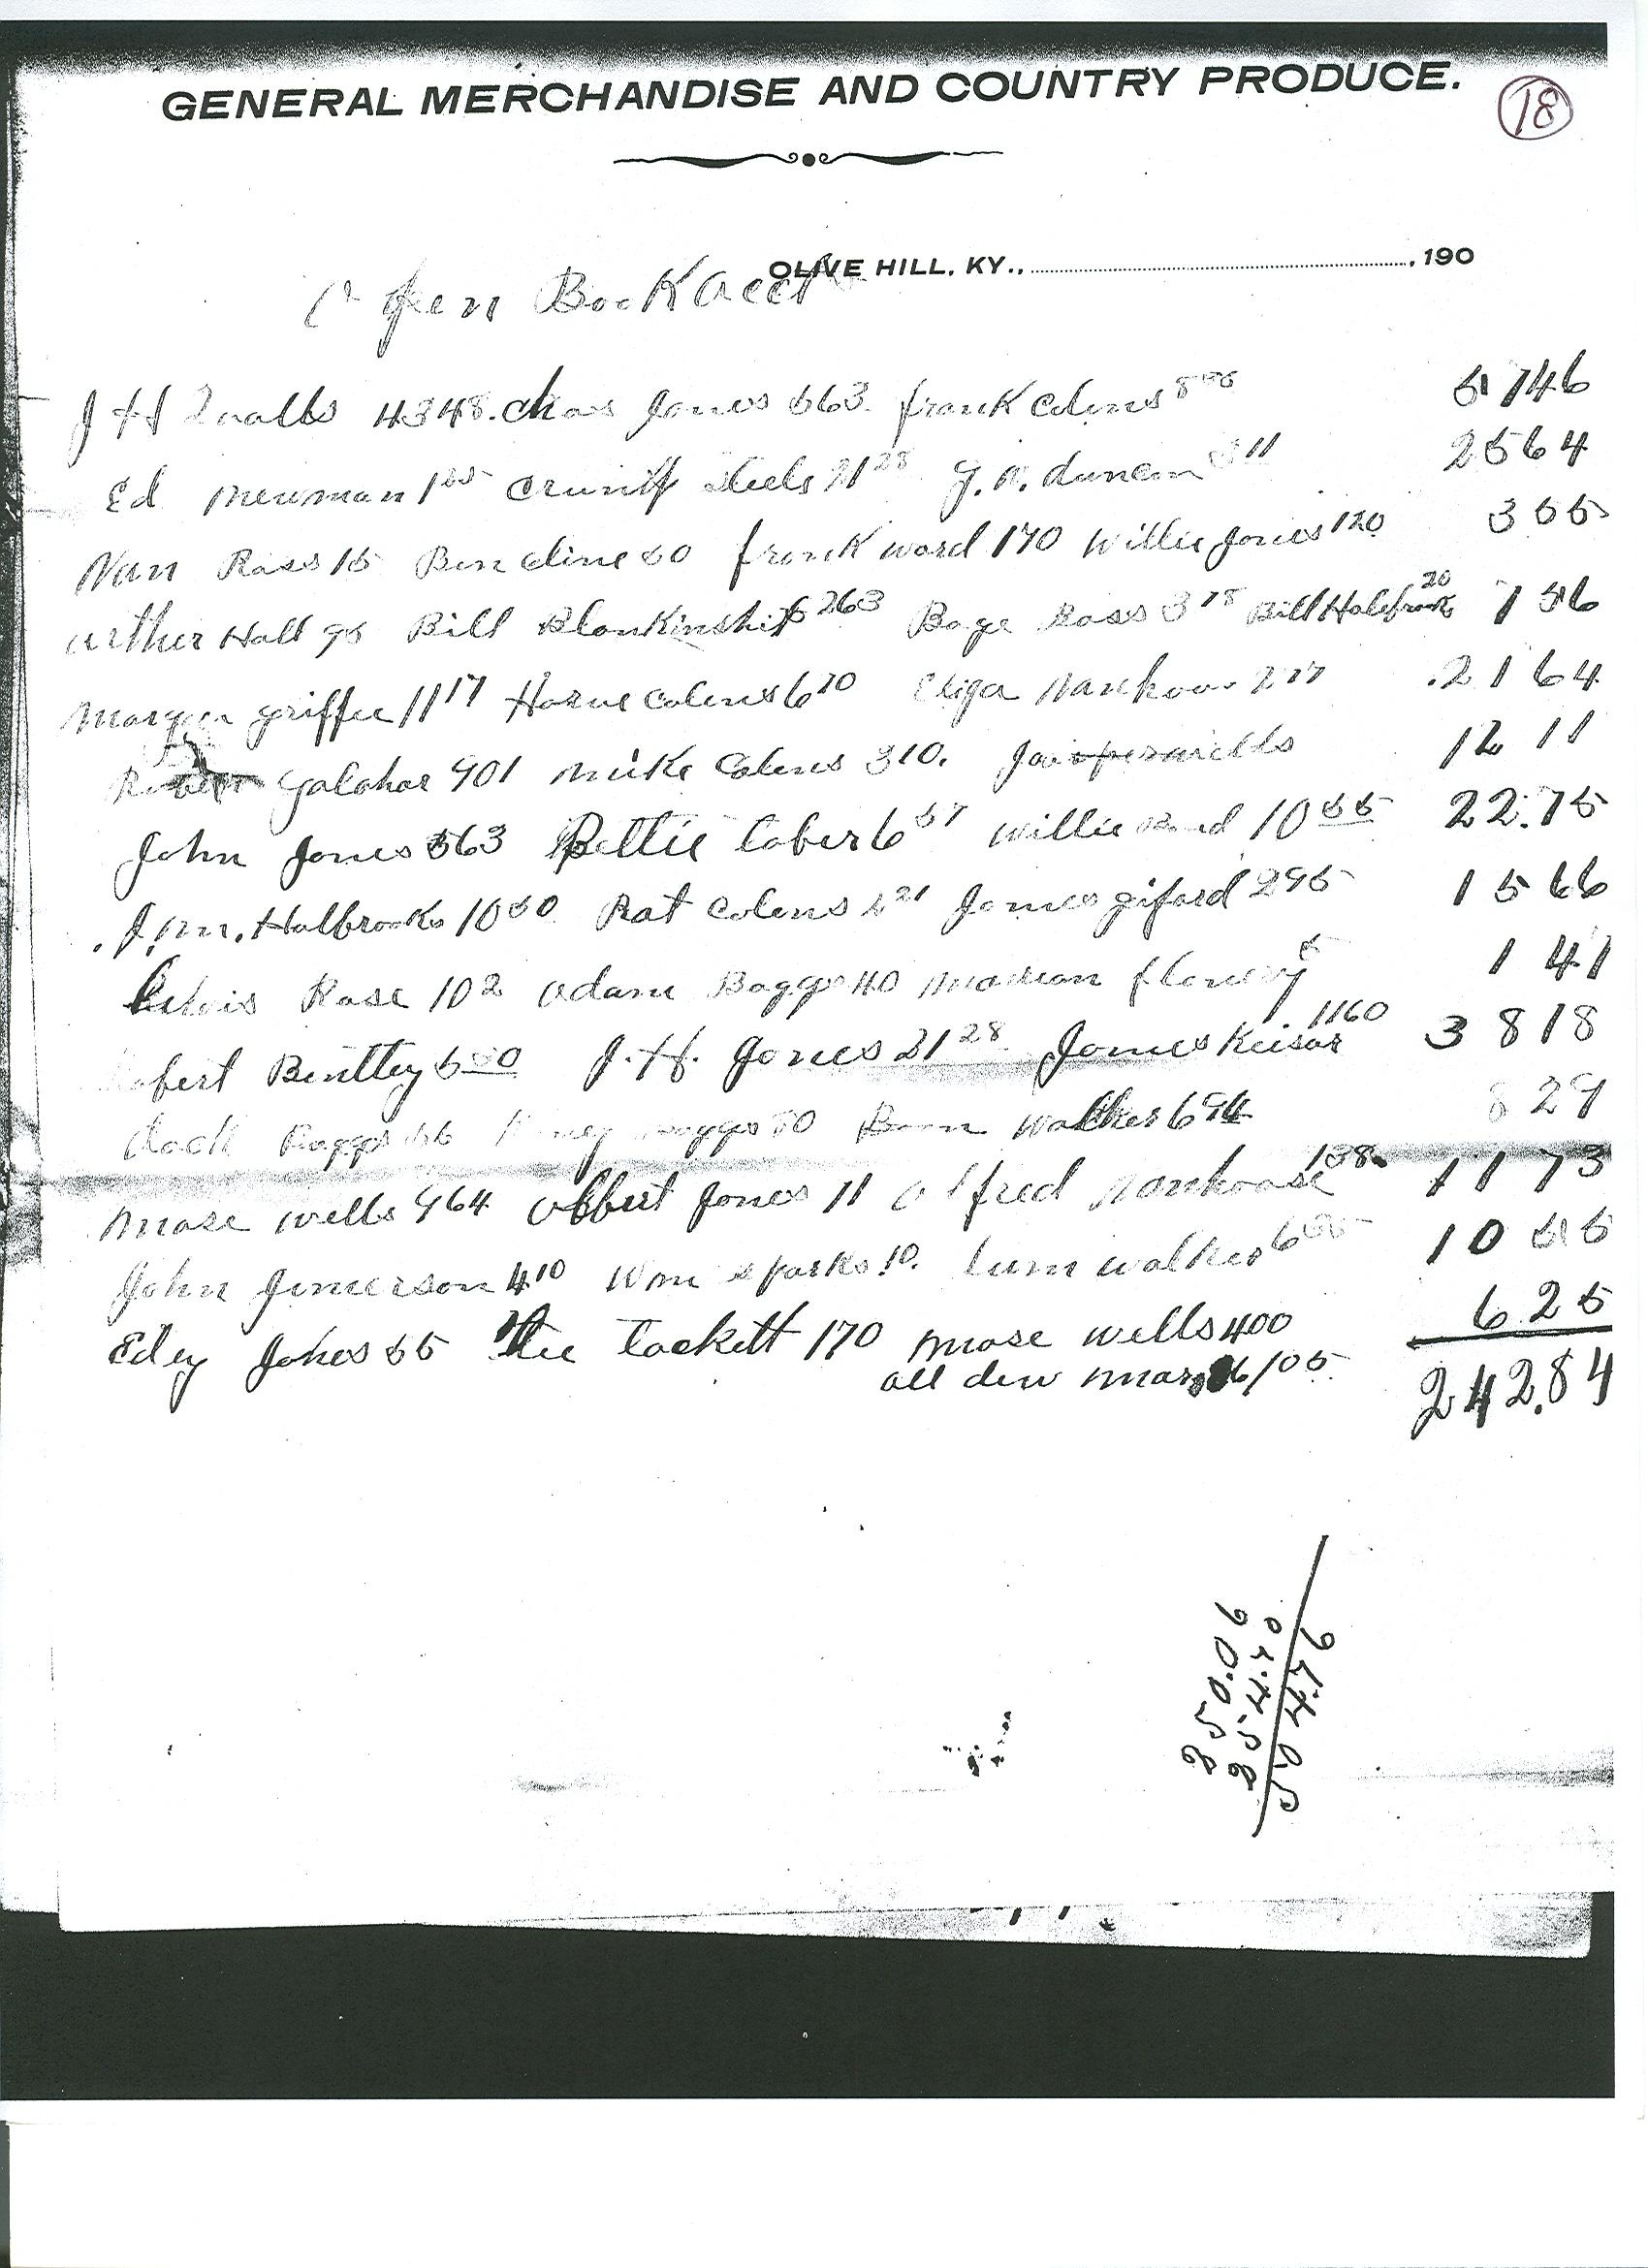 GENERAL MERCHANDISE AND COUNTRY PRODUCE.
18
OLIVE HILL, KY., 190
Open Book Acct
J H Qualls 4348. Chas Jones 563. frank Colens 8
5746
Ed Newman 125 steels 2128 Duncan 311
2564
Nan Ross 15 Ben cline 50 frank ward 170 Willie Jones 120
355
arther Hall 95 Bill Blankinship 263 Bage Ross 378 Bill Holsbrooks 20
756
griffee 1117 Colens 670
2164
galahar 901 Mike Colens 310. Jaisper wells
1211
John Jones 563 Bettie Caber 657 Willie 1055
22.75
J.M. Holbrooks 1050 Pat Colens 221 James giford 295
1566
Rose 102 adam Baggs 40 5
141
Robert Bentley 500 J.H. Jones 2128 James Keisar 1160
3818
Baggs Baggs 80 Walker 694
829
Mose wells 964 Albert Jones 11 alfred Vankoose 158
1173
John Jimerson 410 Wm sparks 10. Lum walker 6
1055
Ediy Jones 55 tackett 170 Mose wells 400
625
all dew Mar 6/05
242.84
250.06
254.70
504.76